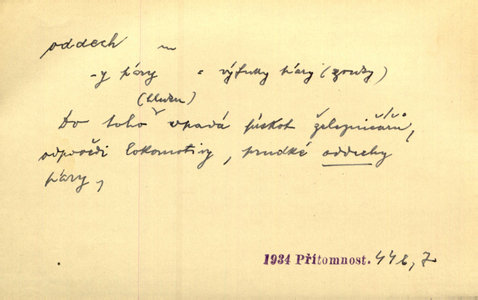 oddech m
-y páry = výfuky páry (zvuky)
(hluku)
Do toho vpadá pískot železničářů,
odpovědi lokomotivy, prudké oddechy
páry,
1934 Přítomnost. 446, 7